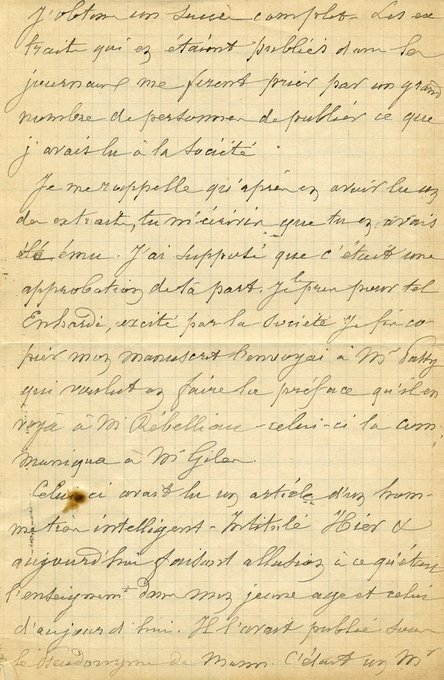 J'obtins un succès complet. Les ex
traits qui en étaient publiés dans les
journaux me firent prier par un grand
nombre de personnes de publier ce que
j'avais lu à la Société
Je me rappelle qu'après en avoir lu un
des extraits, tu m'écrivis que tu en avais
été ému. J'ai supposé que c'était une
approbation de ta part. Je le pris pour tel
Enhardi, excité par la Société je fis co
pier mon manuscrit l'envoyai à Mr
qui voulut en faire la préface qu'il en
voya à Mr Rébelliau - celui-ci la com
muniqua à Mr
Celui ci avait lu un article d'un hom
me très intelligent - Intitulé Hier &
aujourd'hui faisant allusion à ce qu'était
l'enseignemt dans mon jeune age et celui
d'aujourd'hui. Il l'avait publié sous
le Pseudonyme de C'était un Mr